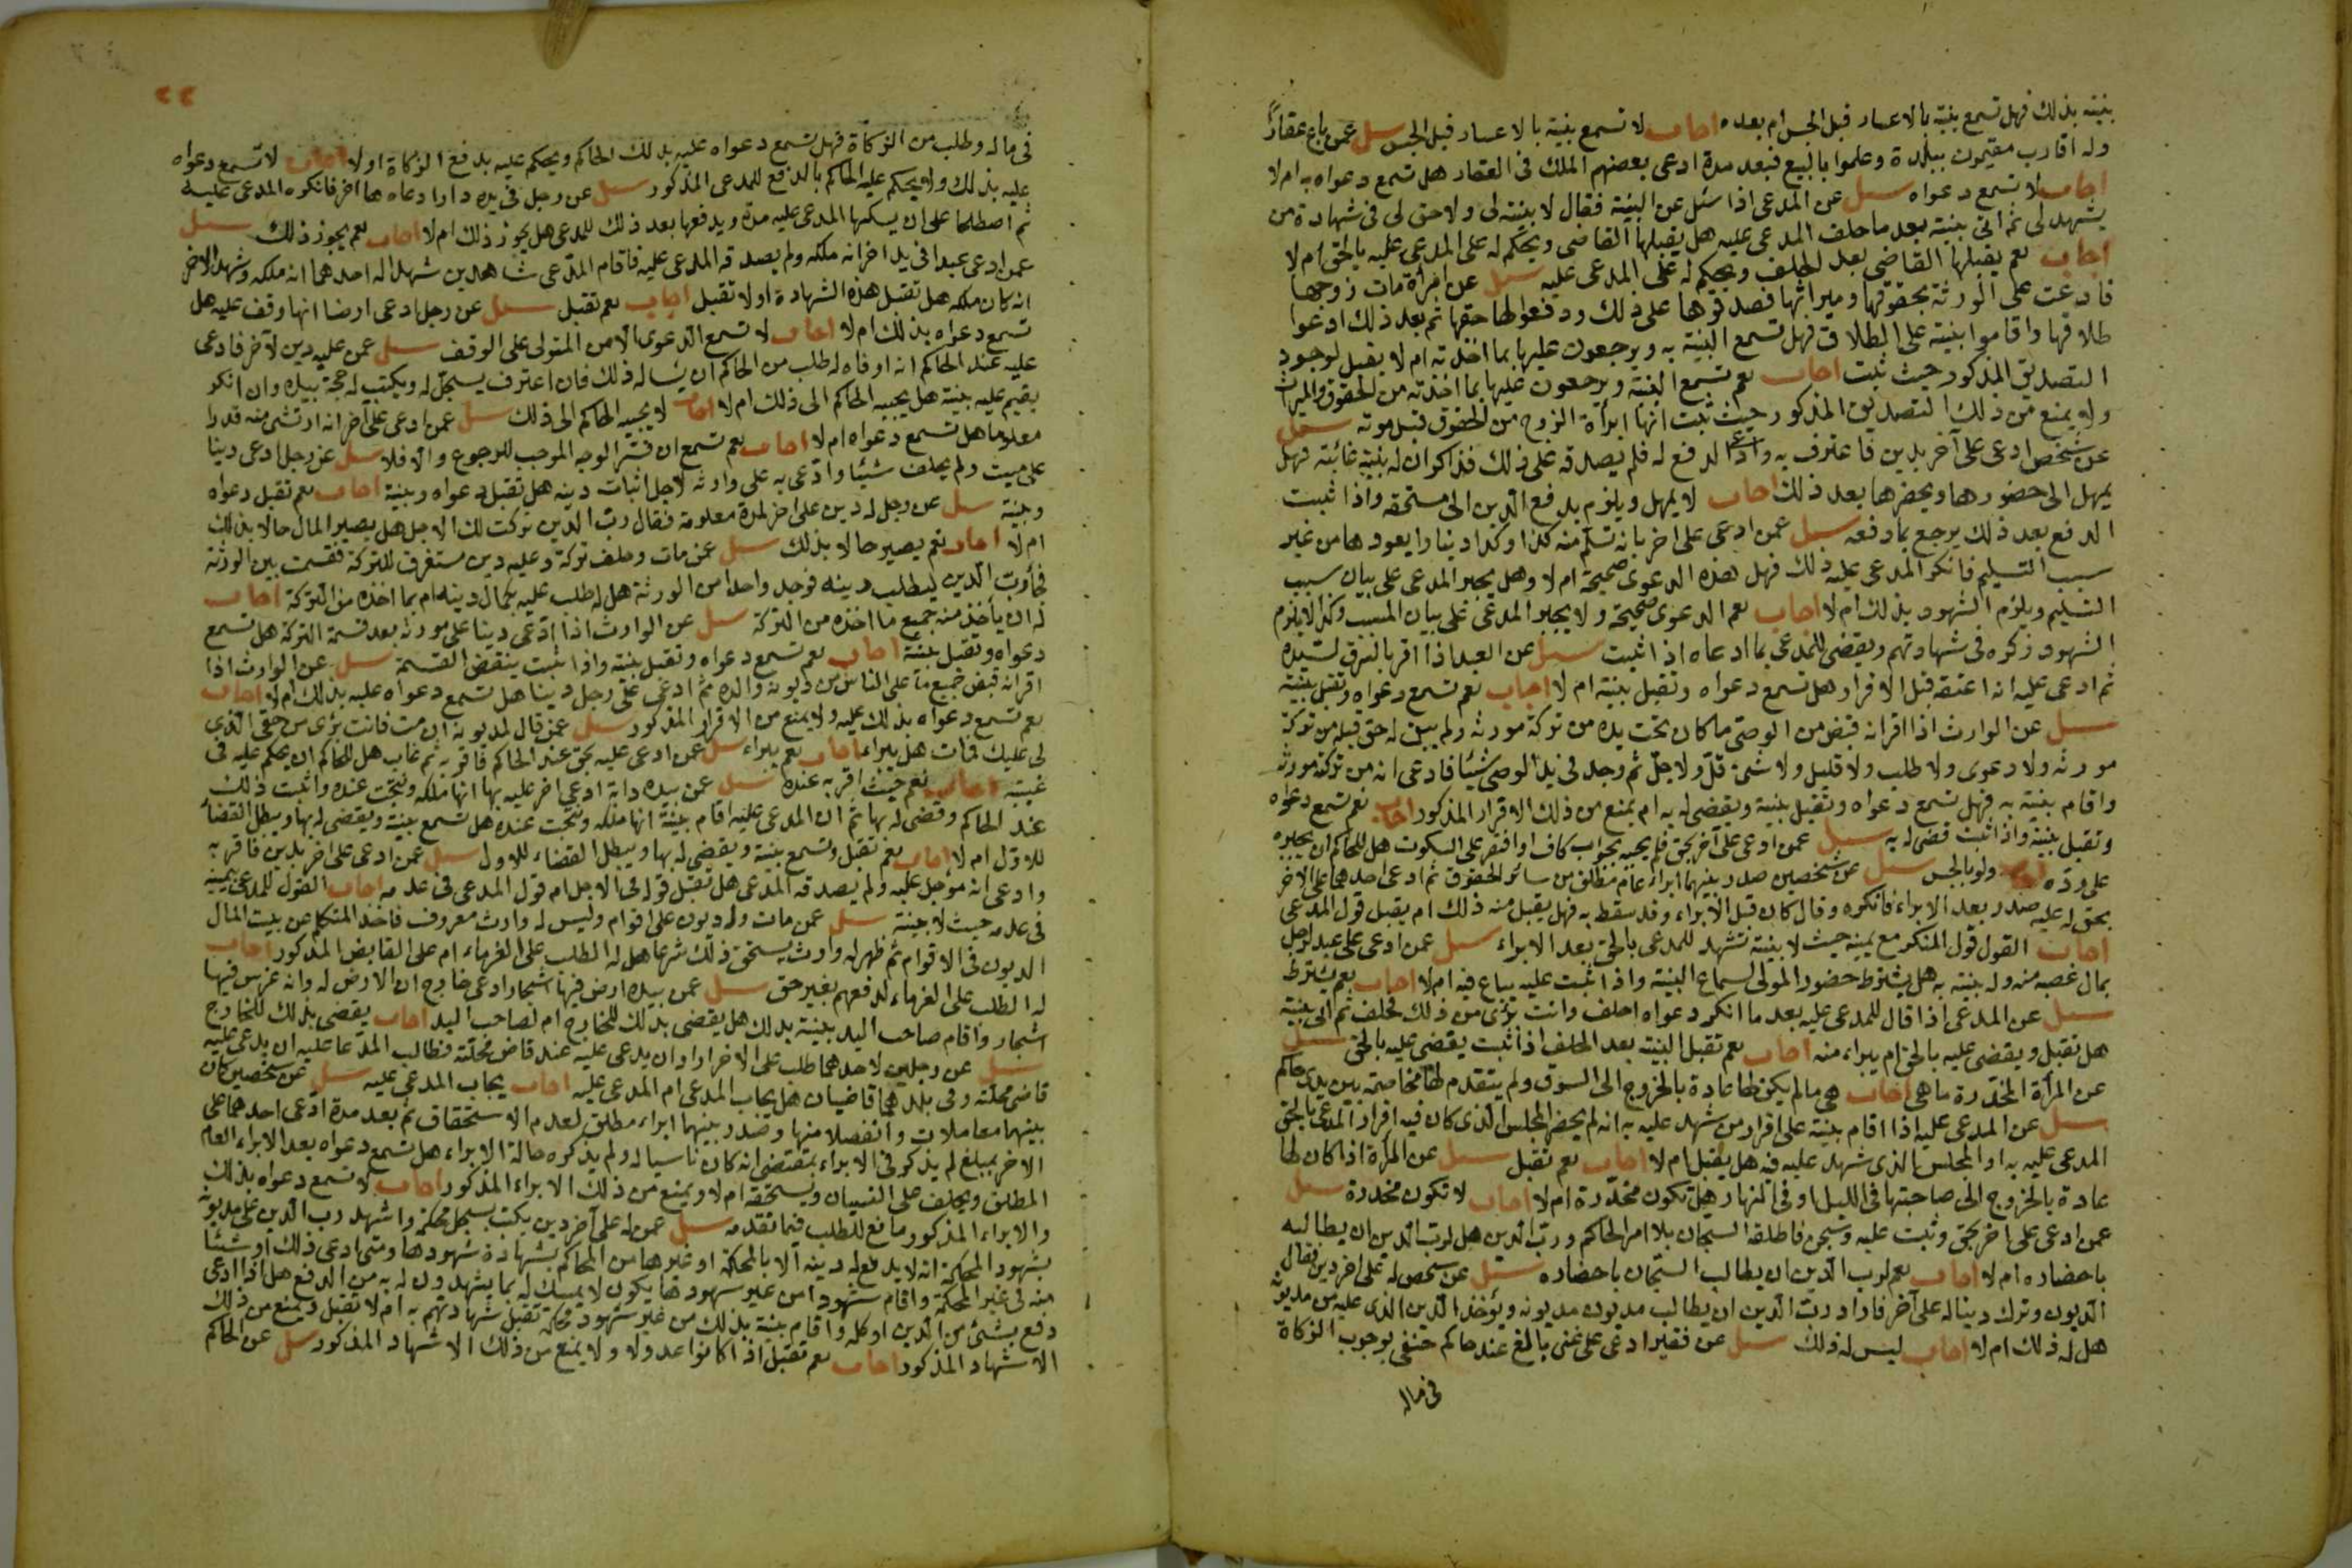 بنيته بذلك فهل تسمع بنيته بالاعسار قبل الحبس ام بعده اجاب لا تسمع بنيته بالاعسار قبل الحبس سيل عمن باع عقارا
وله اقارب مقيمون ببلدة وعلموا بالبيع فبعد مدة ادعى بعضهم الملك فى العقار هل تسمع دعواه به ام لا
اجاب لا تسمع دعواه سيل عن المدعى اذا سئل عن البينة فقال لا بينة لى ولا حق لى فى شهادة من
يشهد لى ثم اتى ببينة بعد ما حلف المدعى عليه هل يقبلها القاضى ويحكم له على المدعى عليه بالحق ام لا
اجاب نعم يقبلها القاضى بعد الحلف ويحكم له على المدعى عليه سيل عن امرأة مات زوجها
فادعت على الورثة بحقوقها وميراثها فصدقوها على ذلك ودفعوا لها حقها ثم بعد ذلك ادعوا
طلاقها واقاموا بينة على الطلاق فهل تسمع البينة به ويرجعون عليها بما اخذته ام لا يقبل لوجود
التصديق المذكور حيث ثبت اجاب نعم تسمع البينة ويرجعون عليها بما اخذته من الحقوق والميراث
ولا يمنع من ذلك التصديق المذكور حيث ثبت انها ابرأة الزوج من الحقوق قبل موته سيل
عن شخص ادعى على آخر بدين فاعترف به وادعى الدفع له فلم يصدقه على ذلك فذكر ان له بينة غائبة فهل
يمهل الى حضورها ويحضرها بعد ذلك اجاب لا يمهل ويلزم بدفع الدين الى مستحقه واذا اثبت
الدفع بعد ذلك يرجع بما دفعه سيل عمن ادعى على اخر بانه تسلم منه كذا وكذا دينارا يعود ها من غير
سبب التسليم فانكر المدعى عليه ذلك فهل هذه الدعوى صحيحة ام لا وهل يجبر المدعى على بيان سبب
التسليم ويلزم الشهود بذلك ام لا اجاب نعم الدعوى صحيحة ولا يجبر المدعى على بيان السبب وكذا لا يلزم
الشهود ذكره فى شهادتهم ويقضى للمدعى بما ادعاه اذا اثبت سيل عن العبد اذا اقر بالرق لسيده
ثم ادعى عليه انه اعتقه قبل الاقرار هل تسمع دعواه وتقبل بينته ام لا اجاب نعم تسمع دعواه وتقبل بينته
سيل عن الوارث اذا اقر انه قبض من الوصى ما كان تحت يده من تركة مورثه ولم يبق له حق قبله من تركة
مورثه ولا دعوى ولا طلب ولا قليل ولا شئ قل ولا جل ثم وجد فى يد الوصى شيئا فادعى انه من تركة مورثه
واقام بينة به فهل تسمع دعواه وتقبل بينته ويقضى له به ام يمنع من ذلك الاقرار المذكور اجاب نعم تسمع دعواه
وتقبل بينته واذا اثبت قضى له به سيل عمن ادعى على آخر بحق فلم يجبه بجواب كاف او اقتصر على السكوت هل للحاكم ان يجبره
على رده ولو بالحبس سيل عن شخصين صدر بينهما ابراء عام مطلق من سائر الحقوق ثم ادعى احدهما على الاخر
بحق له عليه صدر بعد الابراء فانكره وقال كان قبل الابراء وقد سقط به فهل يقبل منه ذلك ام يقبل قول المدعى
اجاب القول قول المنكر مع يمينه حيث لا بينة تشهد للمدعى بالحق بعد الابراء سيل عمن ادعى على عبد لرجل
بمال غصبه منه وله بينة به هل يشترط حضور المولى لسماع البينة واذا اثبت عليه يباع فيه ام لا اجاب نعم يشترط
سيل عن المدعى اذا قال للمدعى عليه بعد ما انكر دعواه احلف وانت برئ من ذلك فحلف ثم اتى ببينة
هل تقبل ويقضى عليه بالحق ام يبراء منه اجاب نعم تقبل البينة بعد الحلف اذا ثبت يقضى عليه بالحق سيل
عن المرأة المخدرة ما هى اجاب هى ما لم يكن لها عادة بالخروج الى السوق ولم يتقدم لها مخاصمة بين يدى حاكم
سيل عن المدعى عليه اذا اقام بينة على اقرار من شهد عليه به انه لم يحضر المجلس الذى كان فيه اقرار المدعى بالحق
المدعى عليه به او المجلس الذى شهد عليه فيه هل يقبل ام لا اجاب نعم تقبل سيل عن المرأة اذا كان لها
عادة بالخروج الى صاحبتها فى الليل او فى النهار هل تكون مخدرة ام لا اجاب لا تكون مخدرة سيل
عمن ادعى على اخر بحق وثبت عليه وسجن فاطلقه السجان بلا امر الحاكم ورب الدين هل لرب الدين ان يطالبه
باحضاره ام لا اجاب نعم لرب الدين ان يطالب السجان باحضاره سيل عن شخص له على اخر دين فقال
الديون وترك دينا له على آخر فاراد رب الدين ان يطالب مديون مديونه ويأخذ الدين الذى عليه من مديونه
هل له ذلك ام لا اجاب ليس له ذلك سيل عن فقير ادعى على غنى بالغ عند حاكم حنفى بوجوب الزكاة
فى ماله
٤٤
فى ماله وطلب من الزكاة فهل تسمع دعواه عليه بذلك الحاكم ويحكم عليه بدفع الزكاة اولا اجاب لا تسمع دعواه
عليه بذلك ولا يحكم عليه الحاكم بالدفع للمدعى المذكور سيل عن رجل فى يده دار ادعاها اخر فانكره المدعى عليه
ثم اصطلحا على ان يسكنها المدعى عليه مدة ويدفعها بعد ذلك للمدعى هل يجوز ذلك ام لا اجاب نعم يجوز ذلك سيل
عمن ادعى عبدا فى يد اخر انه ملكه ولم يصدقه المدعى عليه فاقام المدعى شاهدين شهد له احدهما انه ملكه وشهد الاخر
انه كان ملكه هل تقبل هذه الشهادة او لا تقبل اجاب نعم تقبل سيل عن رجل ادعى ارضا انها وقف عليه هل
تسمع دعواه بذلك ام لا اجاب لا تسمع الدعوى الا من المتولى على الوقف سيل عمن عليه دين لآخر فادعى
عليه عند الحاكم انه اوفاه له طلب من الحاكم ان يسأله ذلك فان اعترف يسجل له ويكتب له حجة بيده وان انكر
يقيم عليه بينة هل يجيبه الحاكم الى ذلك ام لا اجاب لا يجيبه الحاكم الى ذلك سيل عمن ادعى على آخر انه ارتشى منه قدرا
معلوما هل تسمع دعواه ام لا اجاب نعم تسمع ان فسر الوجه الموجب للرجوع والا فلا سيل عن رجل ادعى دينا
على ميت ولم يحلف شيئا وادعى به على وارثه لاجل اثبات دينه هل تقبل دعواه وبينته اجاب نعم تقبل دعواه
وبينته سيل عن رجل له دين على اخر لمدة معلومة فقال رب الدين تركت لك الاجل هل يصير المال حالا بذلك
ام لا اجاب نعم يصير حالا بذلك سيل عمن مات وخلف تركة وعليه دين مستغرق للتركة فقسمت بين الورثة
فجاء رب الدين ليطلب دينه فوجد واحدا من الورثة هل له طلب عليه بكمال دينه ام بما اخذه من التركة اجاب
له ان يأخذ منه جميع ما اخذه من التركة سيل عن الوارث اذا ادعى دينا على مورثه بعد قسمة التركة هل تسمع
دعواه وتقبل بينته اجاب نعم تسمع دعواه وتقبل بينته واذا ثبت ينقض القسمة سيل عن الوارث اذا
اقر انه قبض جميع ما على الناس من ديون والده ثم ادعى على رجل دينا هل تسمع دعواه عليه بذلك ام لا اجاب
نعم تسمع دعواه بذلك عليه ولا يمنع من الاقرار المذكور سيل عمن قال لمديونه ان مت فانت برئ من حقى الذى
لى عليك فمات هل يبراء اجاب نعم يبراء سيل عمن ادعى عليه بحق عند الحاكم فاقر به ثم غاب هل للحاكم ان يحكم عليه فى
غيبته اجاب نعم حيث اقر به عنده سيل عمن بيده دابة ادعى اخر عليه بها انها ملكه ونتجت عنده واثبت ذلك
عند الحاكم وقضى له بها ثم ان المدعى عليه اقام بينة انها ملكه ونتجت عنده هل تسمع بينته ويقضى له بها ويبطل القضاء
للاول ام لا اجاب نعم تقبل وتسمع بينته ويقضى له بها ويبطل القضاء للاول سيل عمن ادعى على اخر بدين فاقر به
وادعى انه مؤجل عليه ولم يصدقه المدعى هل تقبل قوله فى الاجل ام قول المدعى فى عدمه اجاب القول للمدعى بيمينه
فى عدمه حيث لا بينة سيل عمن مات وله ديون على اقوام وليس له وارث معروف فاخذ المتكلم عن بيت المال
الديون فى الاقوام ثم ظهر له وارث يستحق ذلك شرعا هل له الطلب على الغرماء ام على القابض المذكور اجاب
له الطلب على الغرماء لدفعهم بغير حق سيل عمن بيده ارض فيها اشجار ادعى خارج ان الارض له وانه غرس فيها
اشجار واقام صاحب اليد بينة بذلك هل يقضى بذلك للخارج ام لصاحب اليد اجاب يقضى بذلك للخارج
سيل عن رجلين لاحدهما طلب على الاخر اراد ان يدعى عليه عند قاض محلته فطالب المدعا عليه ان يدعى عليه
قاضى محلته وفى بلدهما قاضيان هل يجاب المدعى ام المدعى عليه اجاب يجاب المدعى عليه سيل عن شخصين كان
بينهما معاملات وانفصلا منها وصدر بينهما ابراء مطلق لعدم الاستحقاق ثم بعد مدة ادعى احدهما على
الاخر بمبلغ لم يذكر فى الابراء بمقتضى انه كان ناسيا له ولم يذكره حالة الابراء هل تسمع دعواه بعد الابراء العام
المطلق ويحلف على النسيان ويستحقه ام لا ويمنع من ذلك الابراء المذكور اجاب لا تسمع دعواه بذلك
والابراء المذكور مانع للطلب فيما تقدمه سيل عمن له على آخر دين يكتب بسجل محكمة واشهد رب الدين على مديونه
بشهود المحكمة انه لا يدفع له دينه الا بالمحكمة او غيرها من المحاكم بشهادة شهودها ومتى ادعى ذلك او شيئا
منه فى غير المحكمة واقام شهودا من غير شهودها يكون لا يمسك له بما يشهدون له به من الدفع هل اذا ادعى
دفع بشئ من الدين او كله واقام بينة بذلك من غير شهود محكمة تقبل شهادتهم به ام لا تقبل ويمنع من ذلك
الاشهاد المذكور اجاب نعم تقبل اذا كانوا عدولا ولا يمنع من ذلك الاشهاد المذكور سيل عن الحاكم